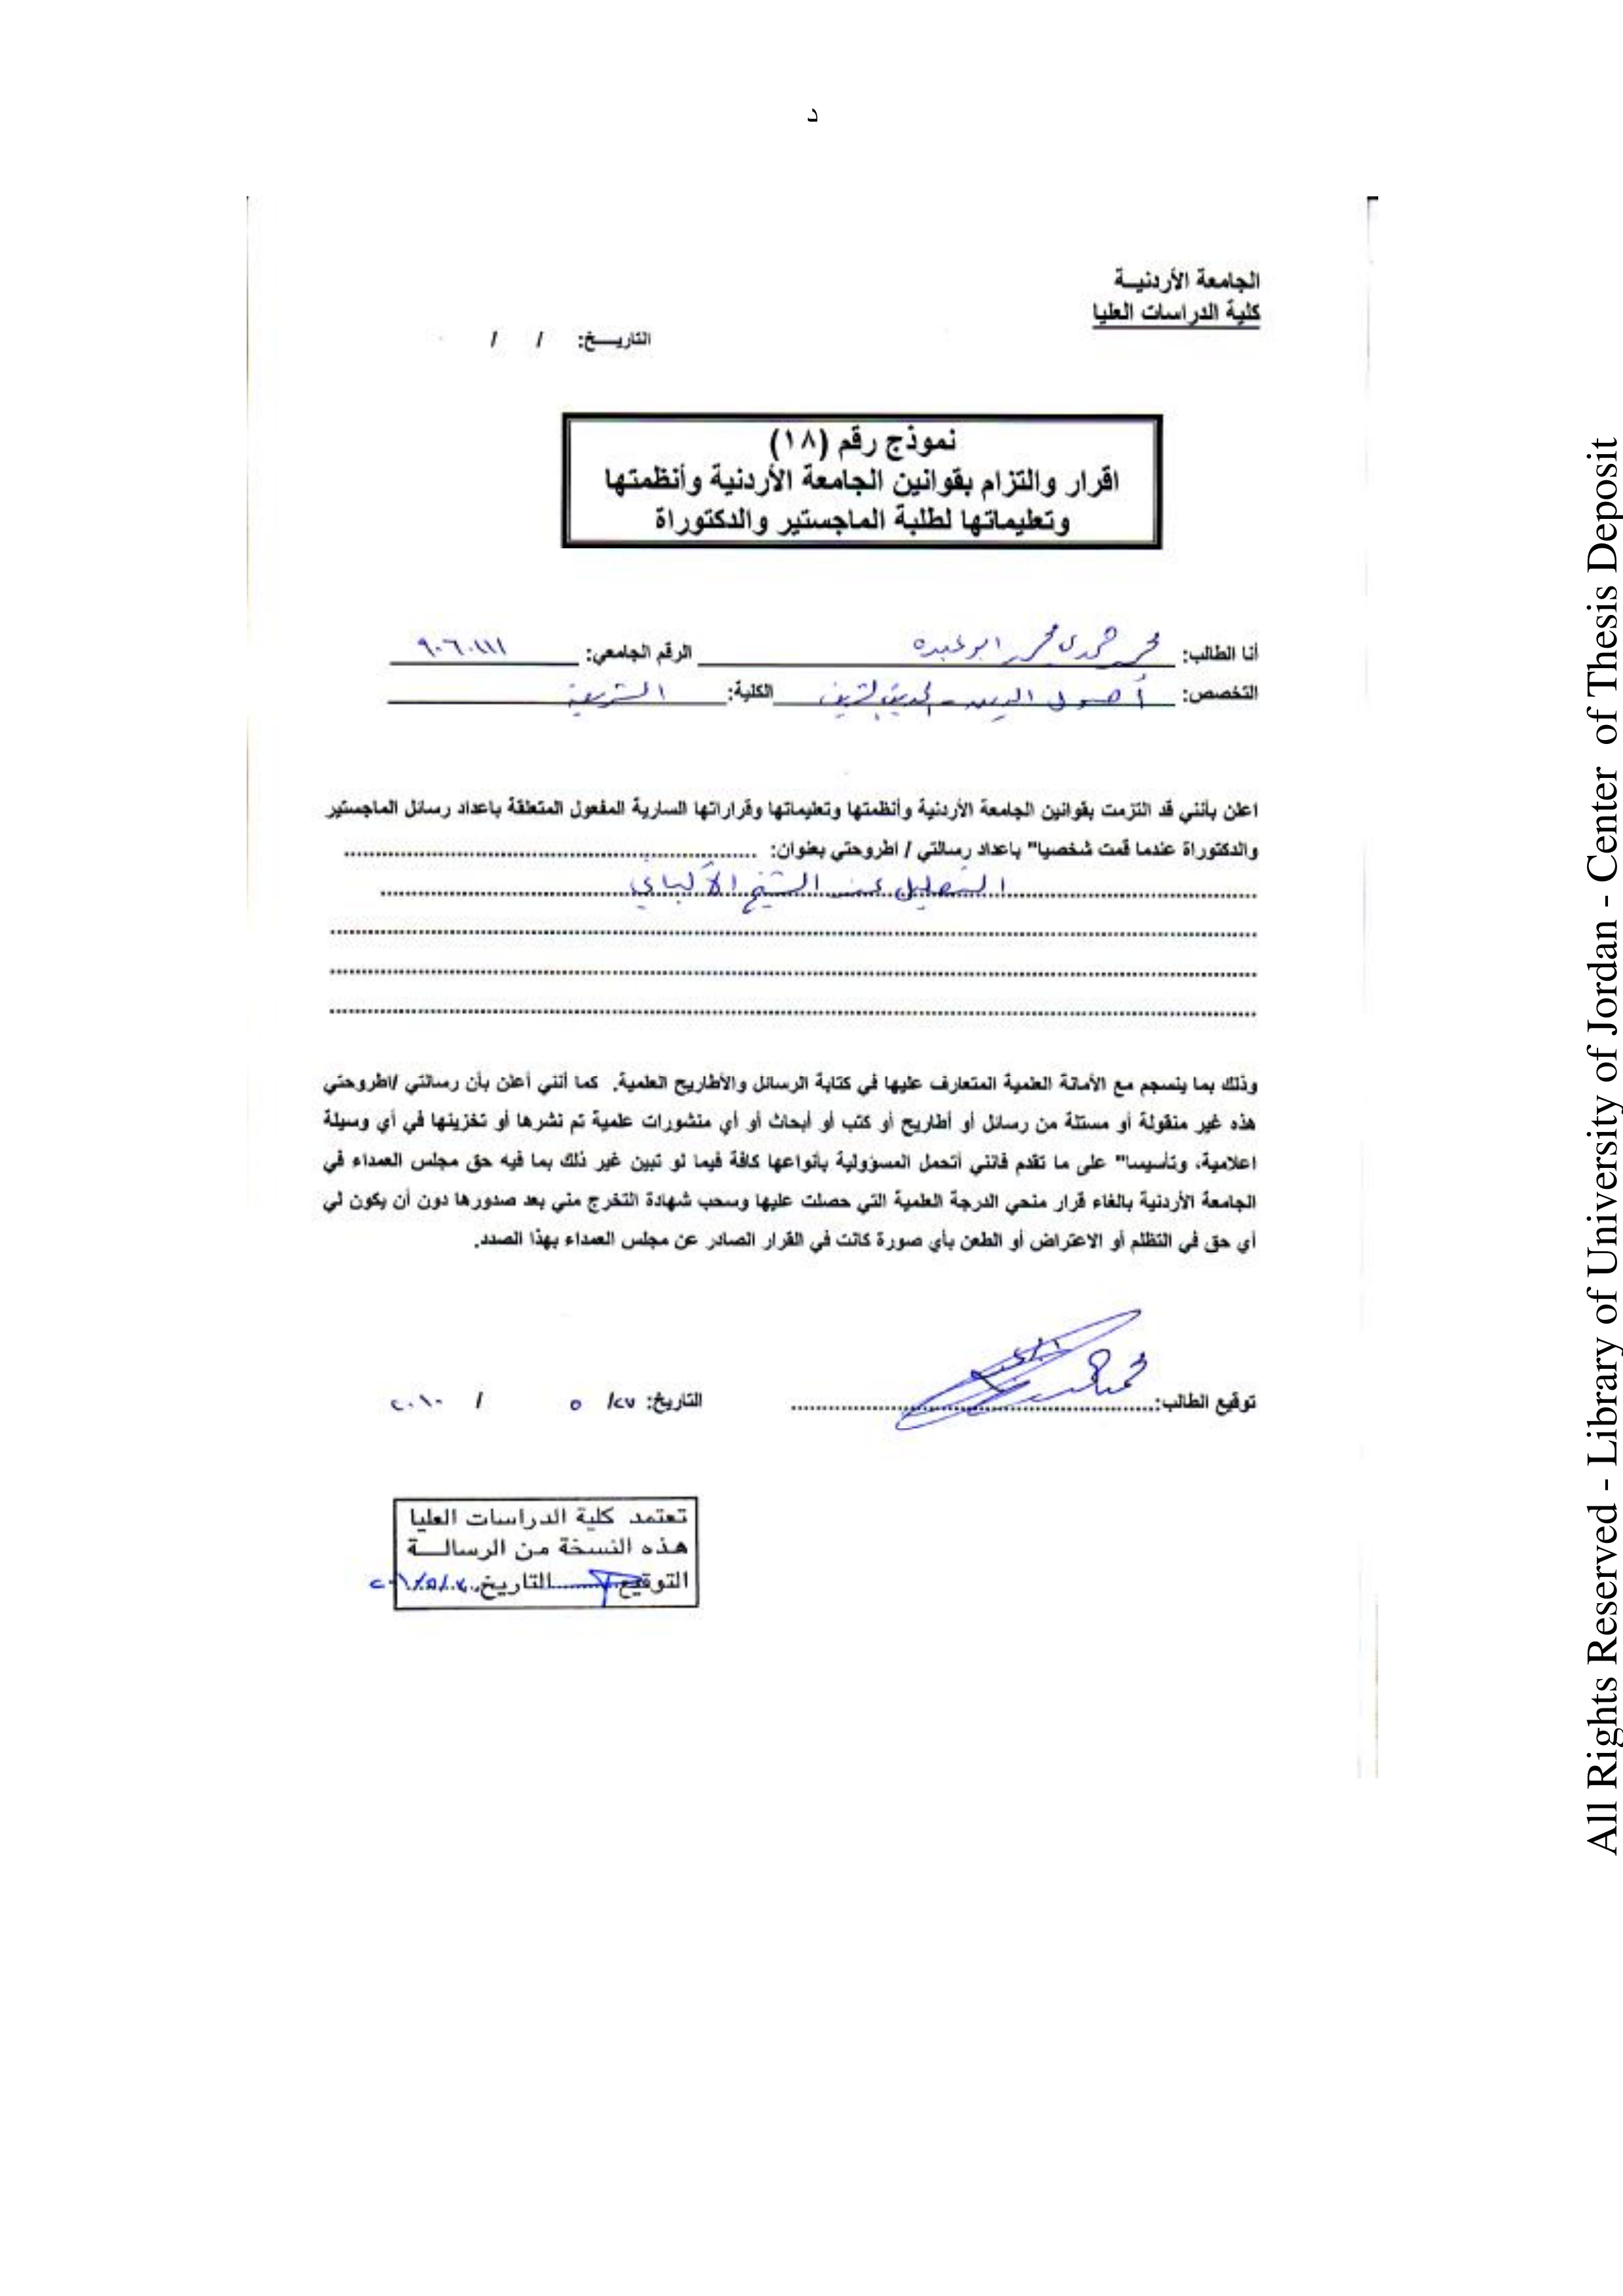 د
الجامعة الأردنيــة
كلية الدراسات العليا
التاريــخ: / /
نموذج رقم (١٨)
اقرار والتزام بقوانين الجامعة الأردنية وأنظمتها
وتعليماتها لطلبة الماجستير والدكتوراة
أنا الطالب: محمد حمدي محمد ابو عبده الرقم الجامعي: ٩٠٦٠١١١
التخصص: أصول الدين - الحديث الشريف الكلية: الشريعة
اعلن بأنني قد التزمت بقوانين الجامعة الأردنية وأنظمتها وتعليماتها وقراراتها السارية المفعول المتعلقة باعداد رسائل الماجستير
والدكتوراة عندما قمت شخصيا" باعداد رسالتي / اطروحتي بعنوان:
التعليل عند الشيخ الألباني
وذلك بما ينسجم مع الأمانة العلمية المتعارف عليها في كتابة الرسائل والأطاريح العلمية. كما أنني أعلن بأن رسالتي /اطروحتي
هذه غير منقولة أو مستلة من رسائل أو أطاريح أو كتب أو أبحاث أو أي منشورات علمية تم نشرها أو تخزينها في أي وسيلة
اعلامية، وتأسيسا" على ما تقدم فانني أتحمل المسؤولية بأنواعها كافة فيما لو تبين غير ذلك بما فيه حق مجلس العمداء في
الجامعة الأردنية بالغاء قرار منحي الدرجة العلمية التي حصلت عليها وسحب شهادة التخرج مني بعد صدورها دون أن يكون لي
أي حق في التظلم أو الاعتراض أو الطعن بأي صورة كانت في القرار الصادر عن مجلس العمداء بهذا الصدد.
توقيع الطالب: التاريخ: ٢٧/ ٥ / ٢٠١٠
تعتمد كلية الدراسات العليا
هذه النسخة من الرسالــة
التوقيع التاريخ
All Rights Reserved - Library of University of Jordan - Center of Thesis Deposit